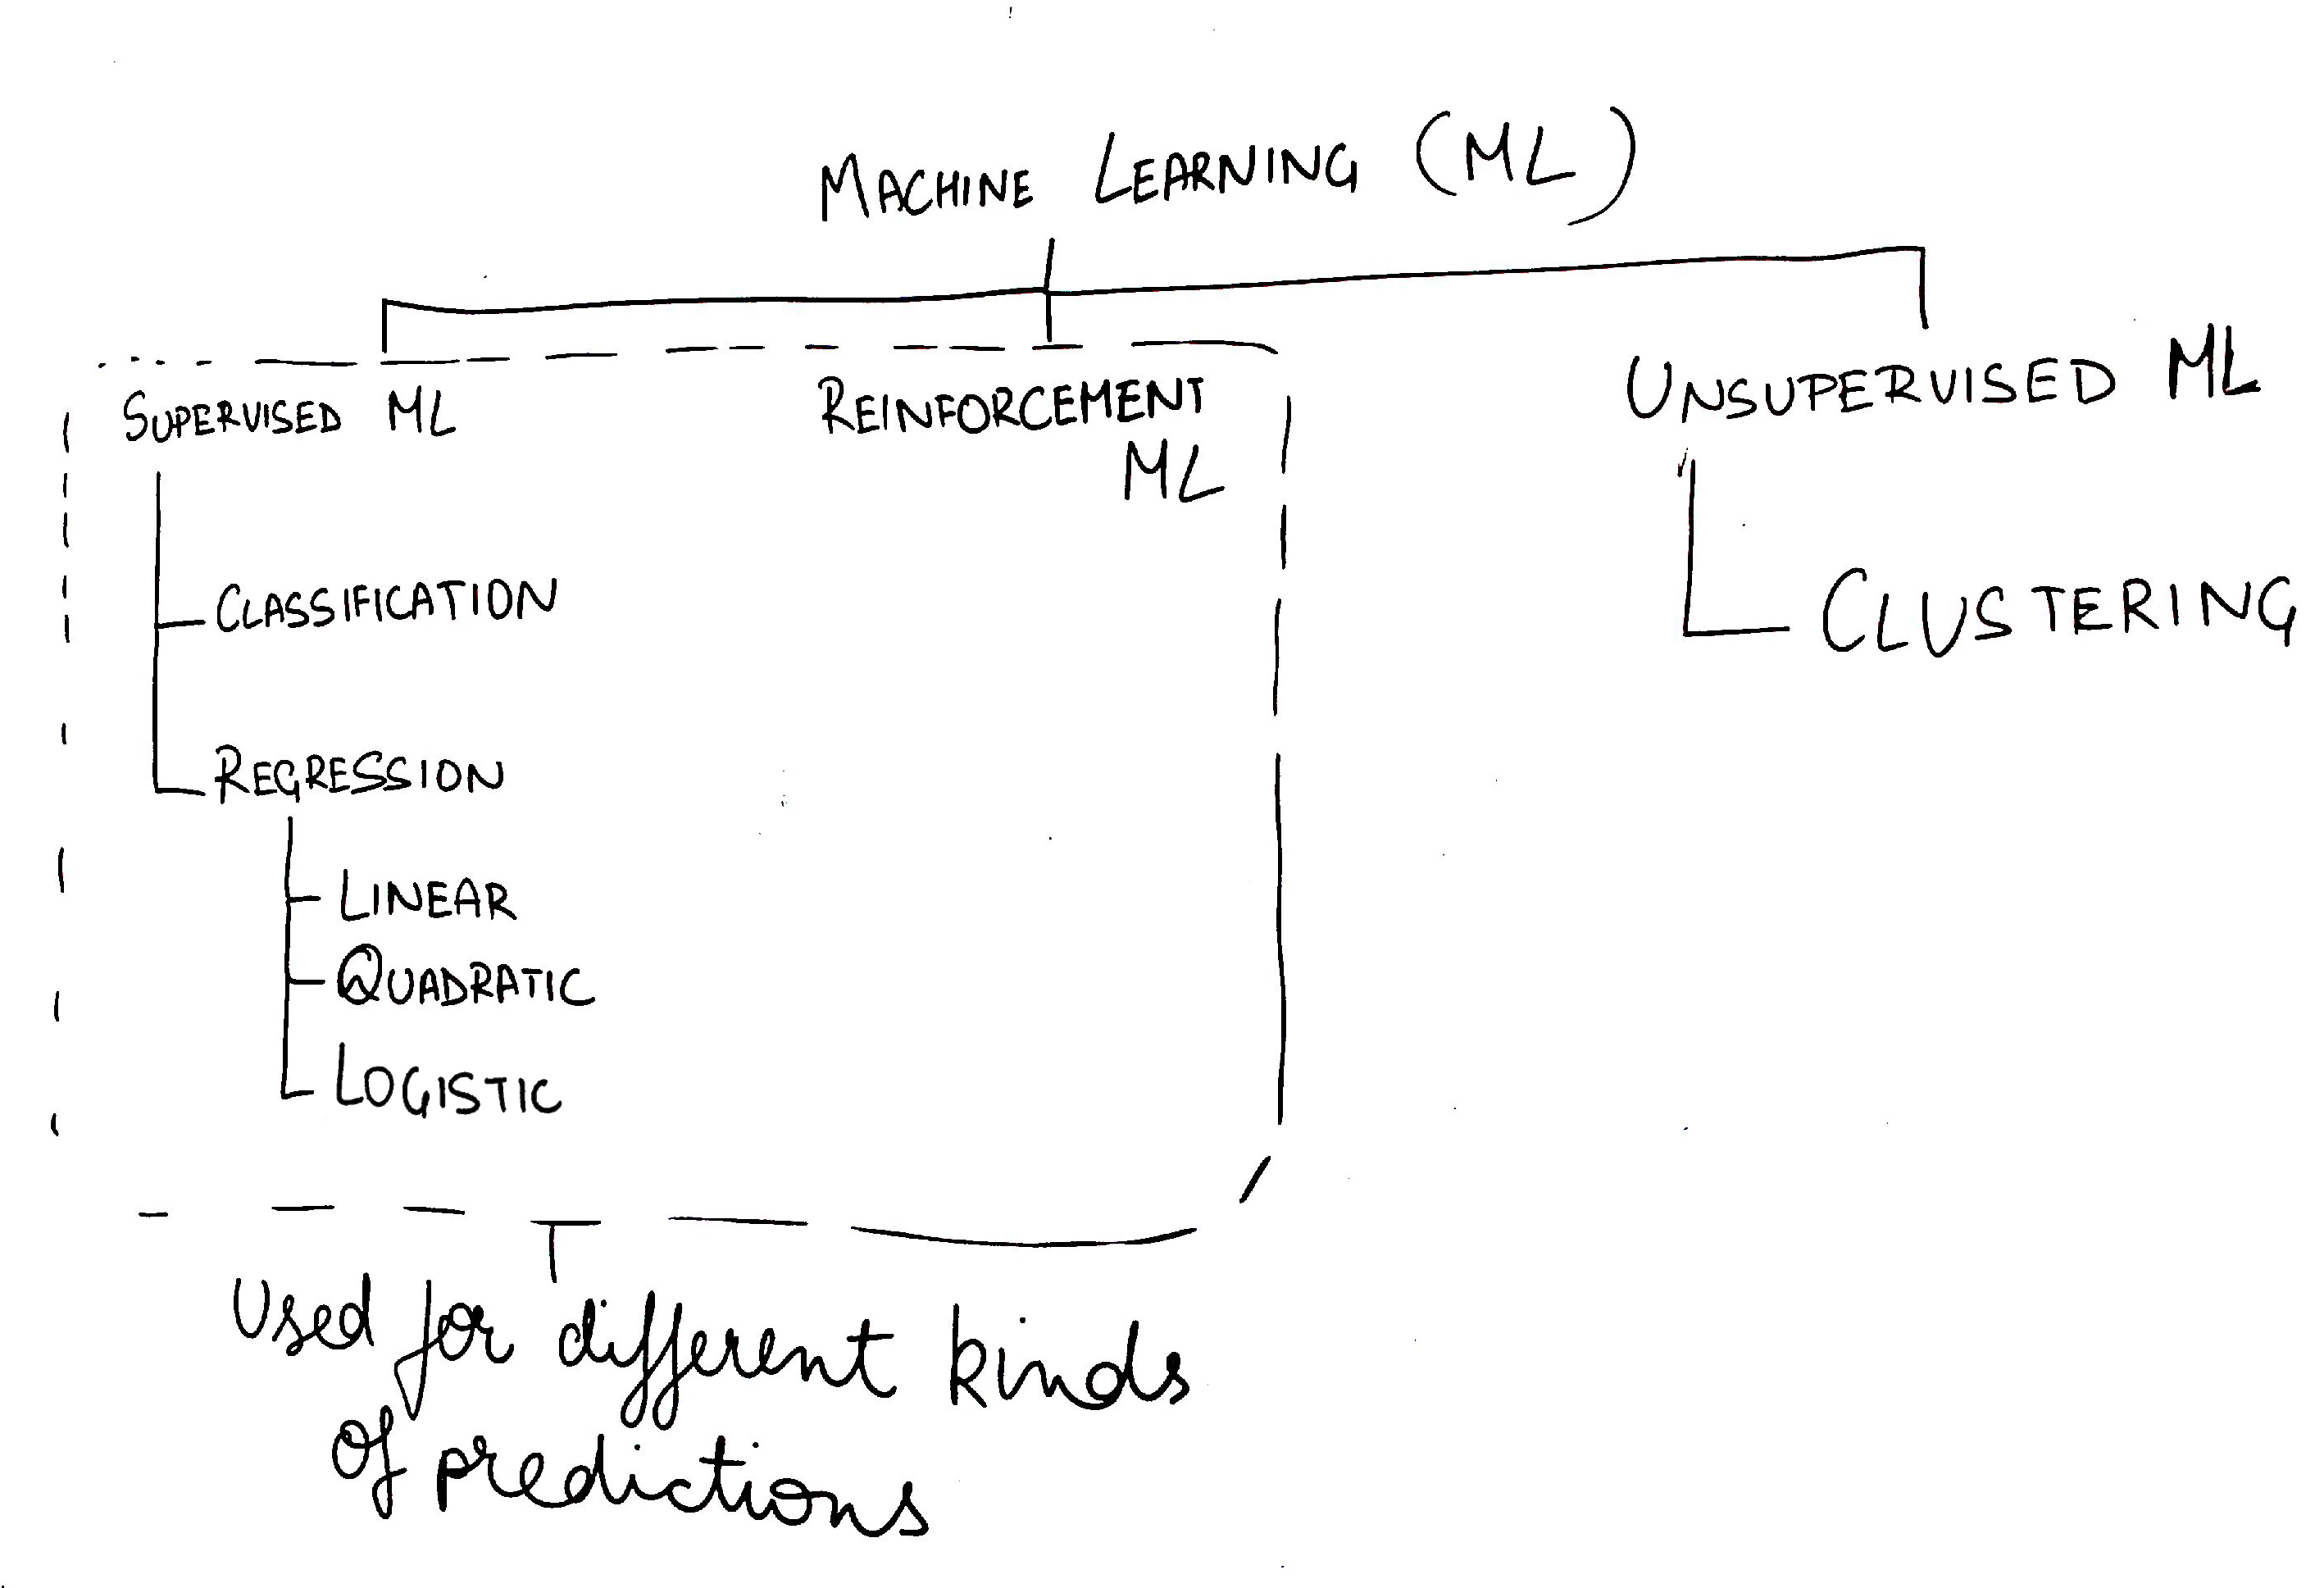 MACHINE LEARNING (ML)
SUPERVISED ML
REINFORCEMENT
ML
UNSUPERVISED ML
CLASSIFICATION
CLUSTERING
REGRESSION
LINEAR
QUADRATIC
LOGISTIC
Used for different kinds
of predictions